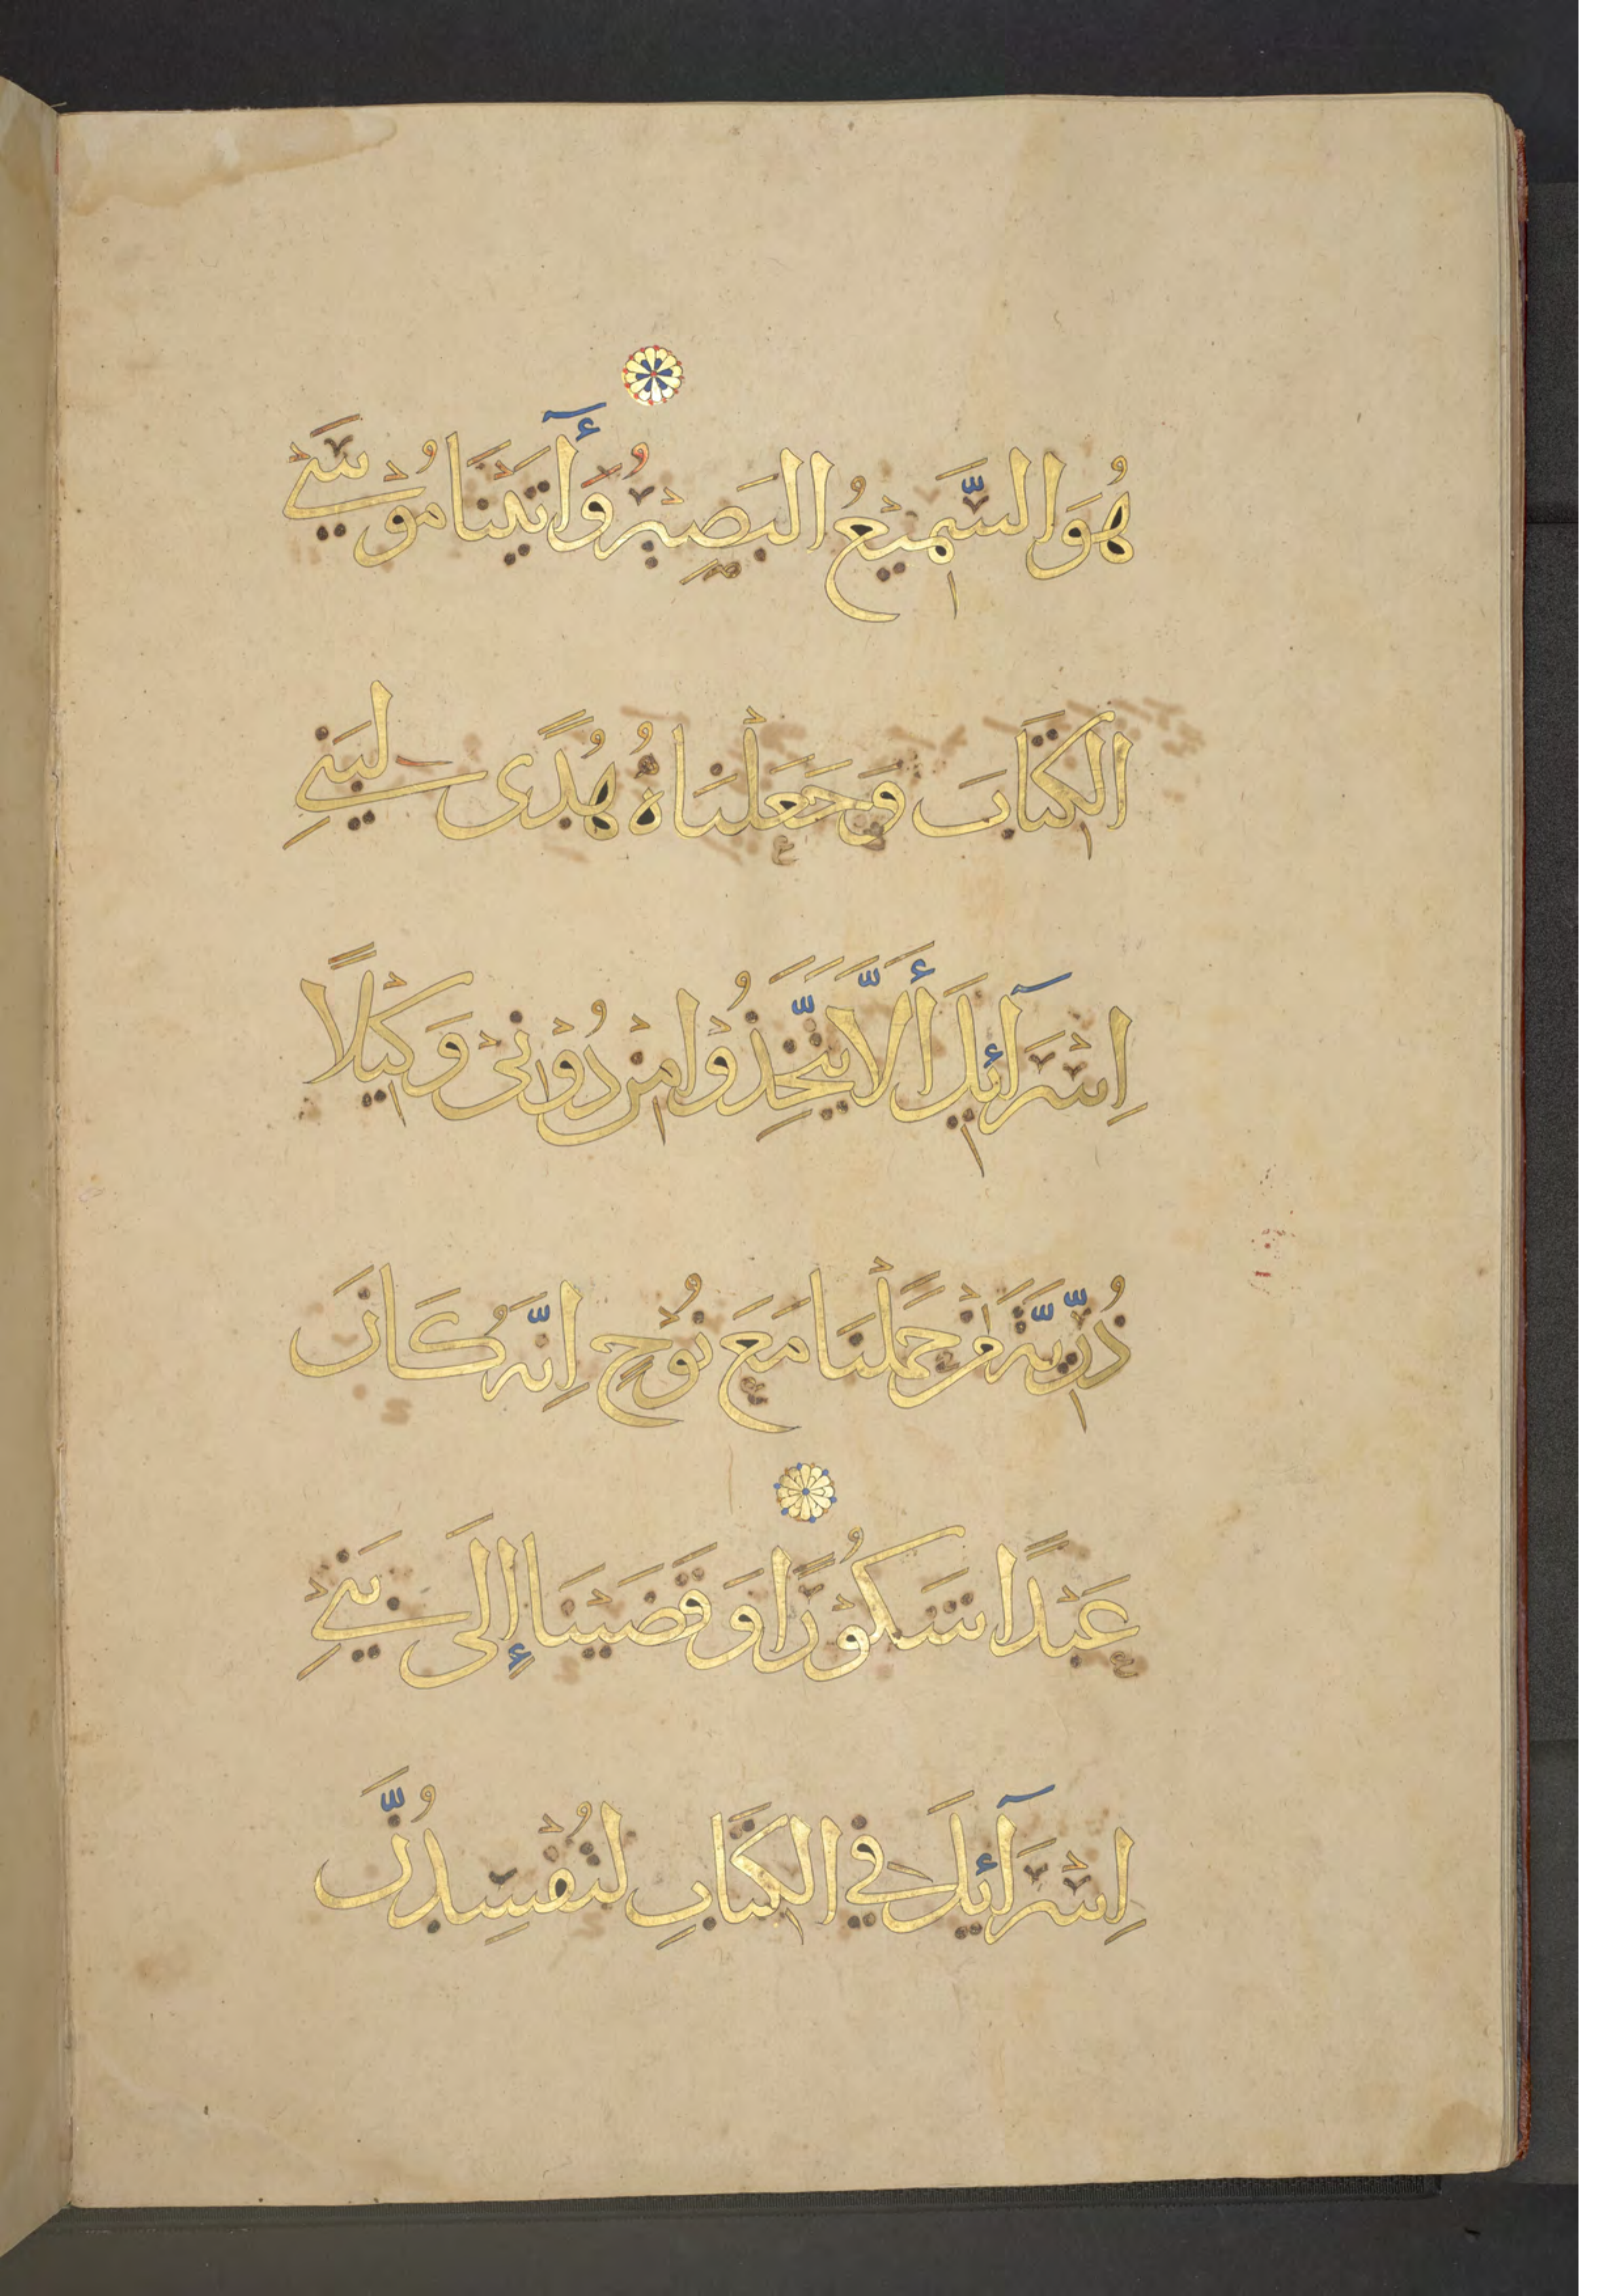 هُوَ السَّمِيْعُ البَصِيْرُ وَأٰتَيْنَا مُوْسَىْ
الكِتَابَ وَجَعَلْنَاهُ هُدًى لِبَنِيْ
اِسْرَآئِيلَ أَلَّا يَتَّخِذُوْا مِنْ دُوْنِيْ وَكِيْلًا
ذُرِّيَّةَ مَنْ حَمَلْنَا مَعَ نُوْحٍ اِنَّهُ كَانَ
عَبْدًا شَكُوْرًا وَقَضَيْنَا إِلَى بَنِيْ
اِسْرَآئِيلَ فِي الكِتَابِ لَتُفْسِدُنَّ